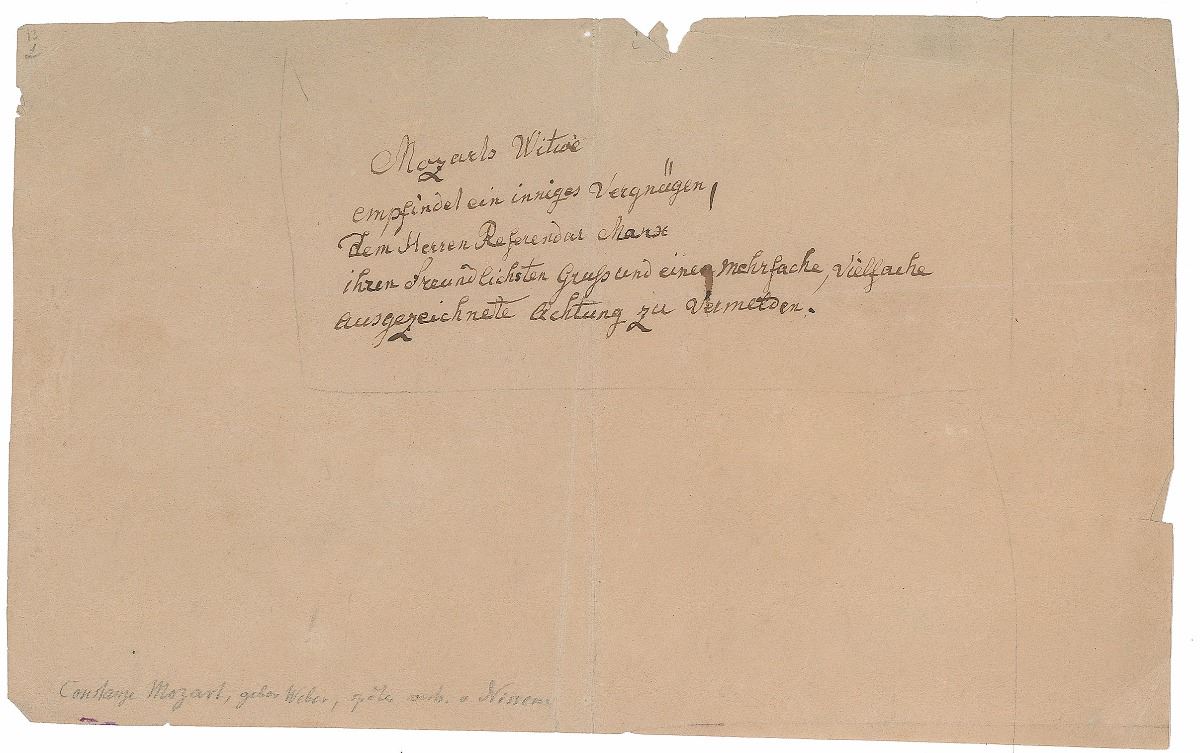 Mozarts Witwe
empfindet ein inniges Vergnügen,
dem Herren Referendar Marx
ihren freundlichsten Gruss und eine mehrfache, Vielfache
ausgezeichnete Achtung zu Vermelden.
Constanze Mozart, gebor Weber, später verh. v Nissen